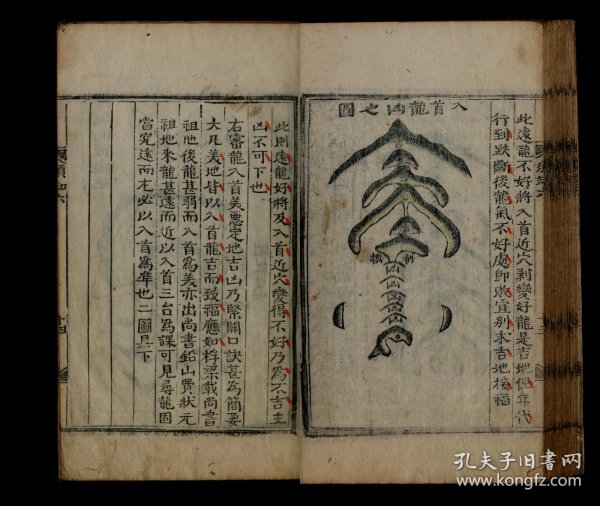 此遠龍不好將入首近穴剥變好龍是吉地但年代
行到跌斷後龍氣不好處即
宜别求吉地接福
入首龍凶之圖
凶
凶
凶
凶
凶
此則遠龍好將及入首近穴變得不好乃為不吉主
凶不可下也
右審龍入首美惡定地吉凶乃緊關口訣甚為簡要
大凡美地皆以入首龍吉而致福應如桴梁載尚書
祖地後龍甚弱而入首為美亦出尚書鉛山費狀元
祖地來龍甚遠而近以入首三台為課可見尋龍固
當究遠而尤必以入首為準也二圖具下
孔夫子旧书网
www.kongfz.com